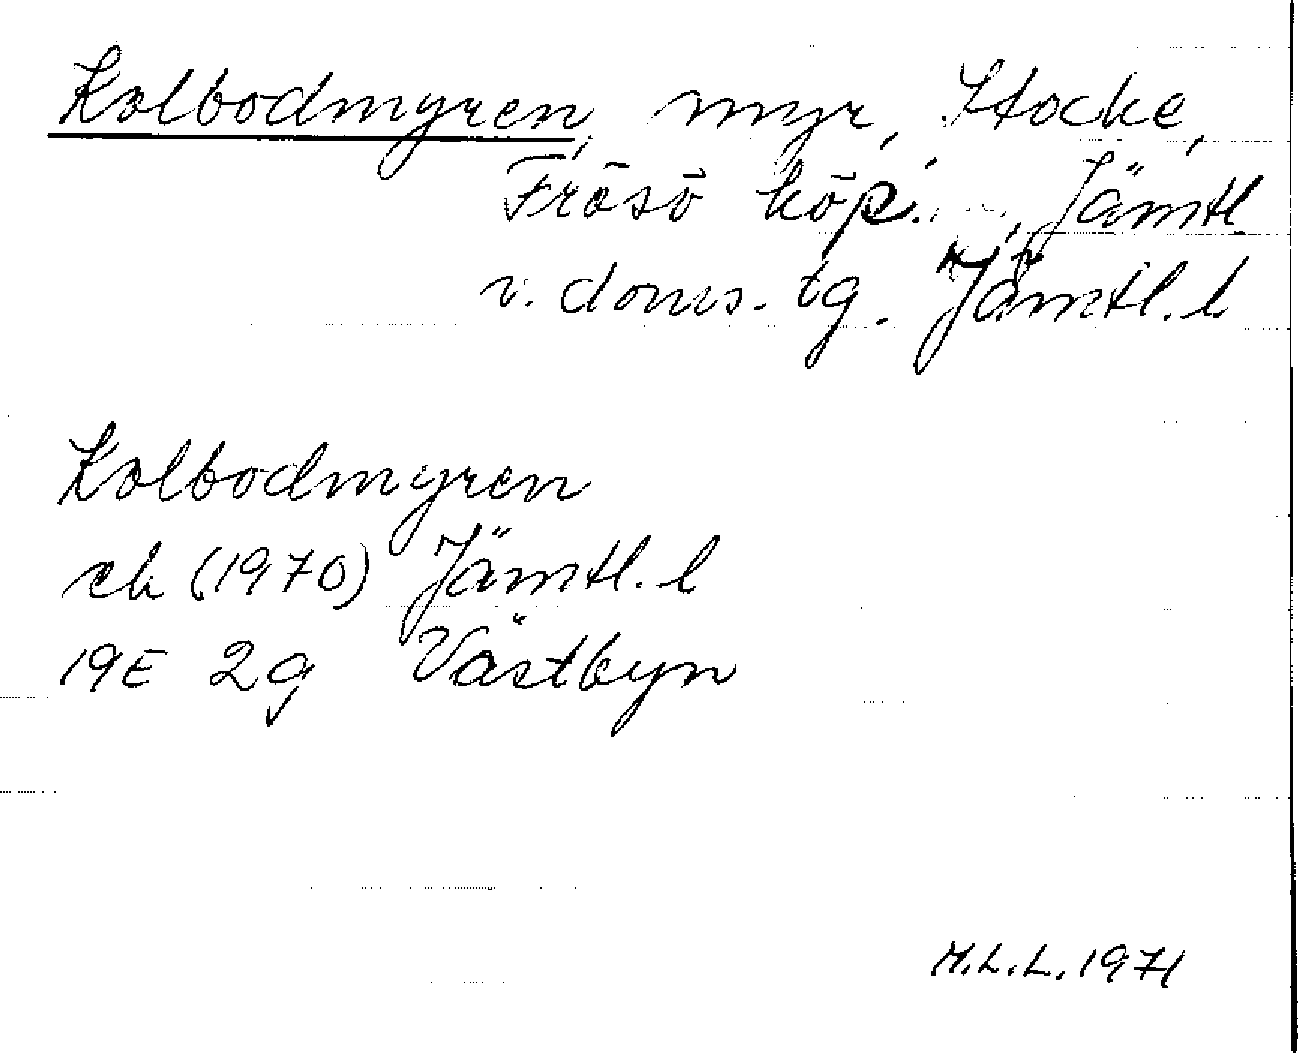 Kolbodmyren, myr, Stocke,
Frösö köp., Jämtl.
v. doms. tg. Jämtl. l
Kolbodmyren
ek (1970) Jämtl. l
19E 2g Västbyn
M.L.L. 1971